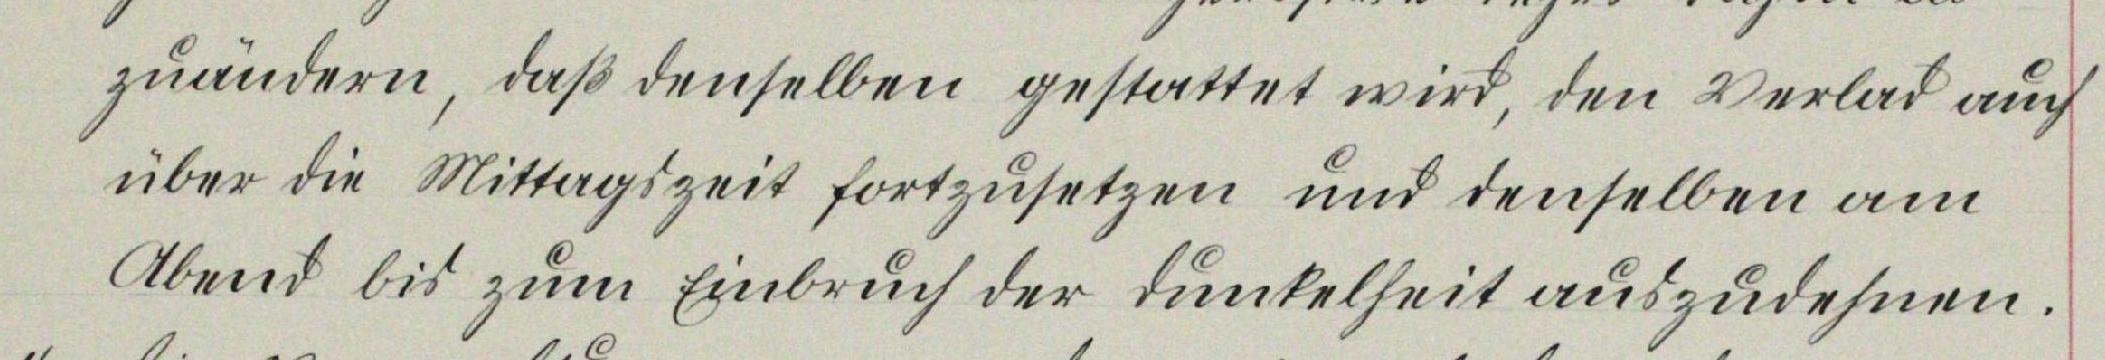 zuändern, daß denselben gestattet wird, den Verlad auch
über die Mittagszeit fortzusetzen und denselben am
Abend bis zum Einbruch der Dunkelheit auszudehnen.